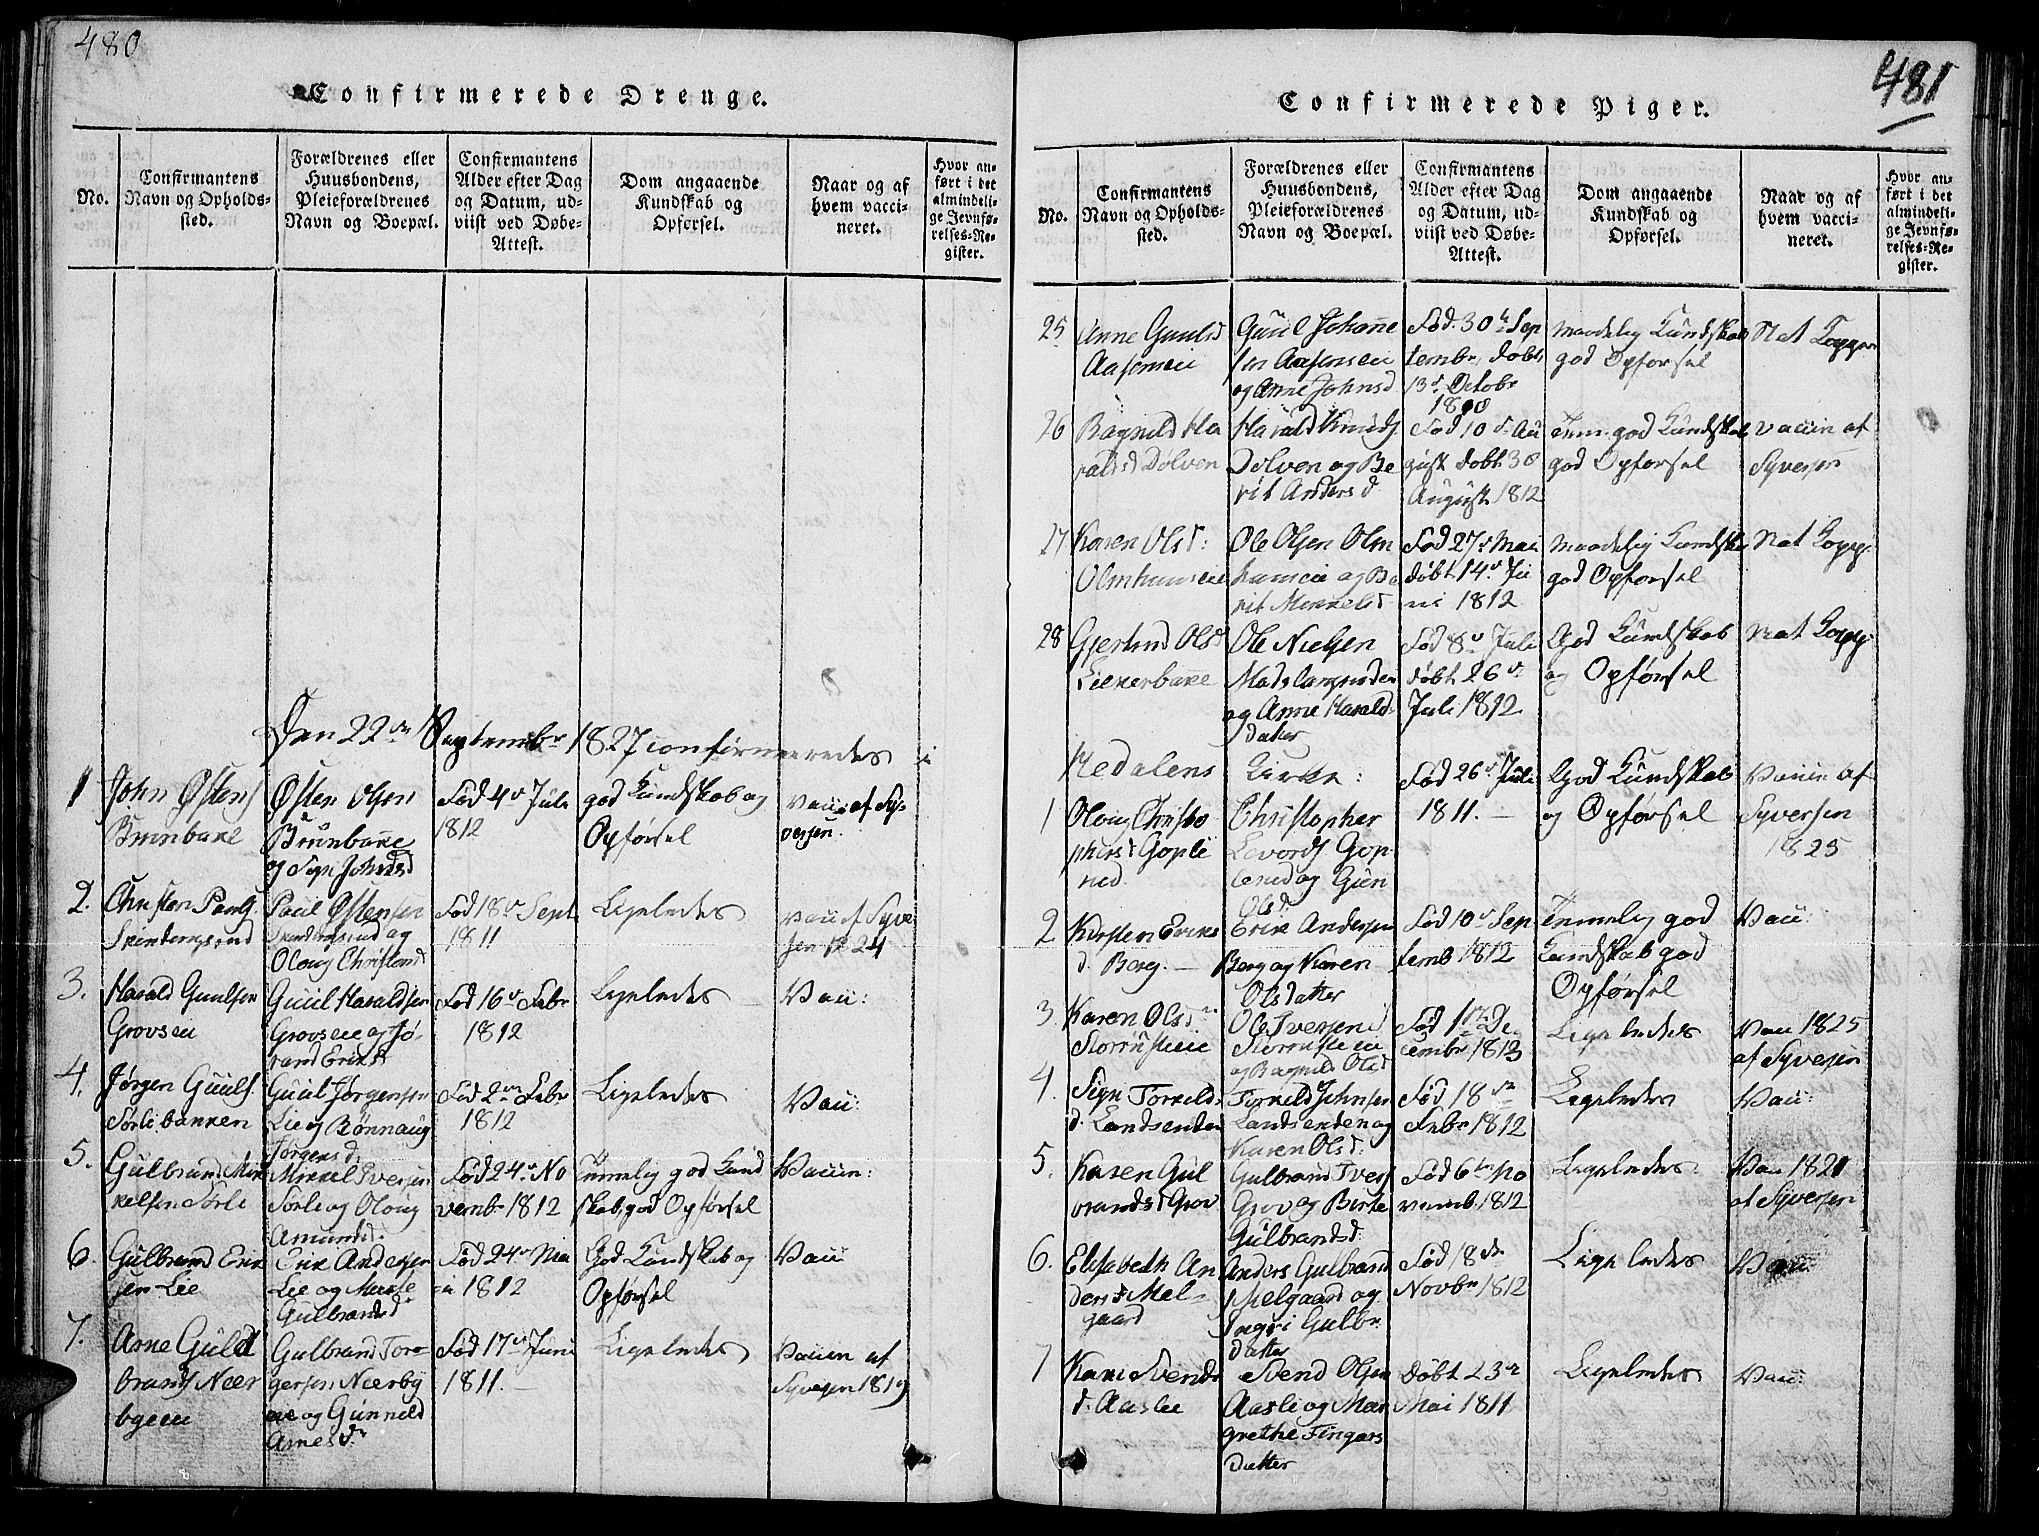 480
Confirmerede Drenge.
No.
Confirmantens
Navn og Opholds-
sted.
Forældrenes eller
Huusbondens,
Pleieforældrenes
Navn og Boepæl.
Confirmantens
Alder efter Dag
og Datum, ud-
viist ved Døbe-
Attest.
Dom angaaende
Kundskab og
Opførsel.
Naar og af
hvem vacci-
neret.
Hvor an-
ført i det
almindeli-
ge Jevnfø-
relses-Re-
gister.
Den 22de Septembr 1827 confirmeredes i
1
John Østens
Brunbakke
Østen Olsen
Brunbakke
og Sigri Johnsd
Fød 4de Juli
1812
god Kundskab og
Opførsel
Vacc: af Sy-
versen.
2.
Christen Pauls.
Skinderngsrud
Paul Østensen
og
Oloug Christensd
Fød 18de Sept
1811
Ligeledes
Vacc af Syve
sen 1824
3.
Harald Guulsen
Grovseie
Guul Haraldsen
Grovseie og Jø-
rand Eriksd
Fød 16de Febr
1812
Ligeledes
Vacc:
4.
Jørgen Guuls.
Sørlibakken
Guul Jørgensen
Lie og Rønnaug
Jørgensd:
Fød 2den Febr
1812
Ligeledes
Vacc:
5.
Gulbrand Mik
kelsen Sørli
Mikkel Iversen
Sørli og Oloug
Amundsd:
Fød 24de No
vembr 1812
Temmelig god Kund
skab, god Opførsel
Vaccin:
6.
Gulbrand Erik
sen Lie
Erik Andersen
Lie og Marte
Gulbrandsd
Fød 24de Ma
i 1812
God Kundskab og
Opførsel
Vacc
7.
Arne Guld
brands Nær
byeeie
Gulbrand Tor-
gersen Nærby
eie og Gunnild
Arnesdr
Fød 17de Juni
1811.
Ligeledes
Vaccin af
Syversen 1819
481
Confirmerede Piger.
No.
Confirmantens
Navn og Opholds-
sted.
Forældrenes eller
Huusbondens,
Pleieforældrenes
Navn og Boepæl.
Confirmantens
Alder efter Dag
og Datum, ud-
viist ved Døbe-
Attest.
Dom angaaende
Kundskab og
Opførsel.
Naar og af
hvem vacci-
neret.
Hvor an-
ført i det
almindeli-
ge Jevnfø-
relses-Re-
gister.
25
Anne Guulsd
Aaserneie
Guul Johanne
sen Aaserneie
og Anne Johnsd
Fød 30te Sep
tembr, døbt
13de Octobr
1808
Maadelig Kundskab
god Opførsel
Nat Kopper
26
Ragnild Ha
raldsd Dølven
Harald Knuds
Dølven og Be
rit Andersd
Fød 10de Au
gust døbt 30
August 1812
Tem. god Kundskab
god Opførsel
Vaccin af
Syversen
27
Karen Olsd:
Olmhuuseie
Ole Olsen Olm
huuseie og Be
rit Mikkelsd
Fød 27de Mai
døbt 14de Ju
ni 1812
Maadelig Kundska
god Opførsel
Nat Kopp.
28
Gjertrud Olsd
Liekerbakke
Ole Nielsen
og Anne Harald-
datter
Fød 8de Juli
døbt 26de
Juli 1812
God Kundskab
og Opførsel
Nat Kopp
Hedalens Kirke:
1
Oloug Christo
phersd Gople
rud.
Christopher
Levords Gop
lerud og Gun
Olsd
Fød 26de Juli
1811.
God Kundskab
og Opførsel
Vaccin af
Syversen
1825
2
Kirsten Eriks
d. Berg.
Erik Andersen
Berg og Karen
Olsdatter
Fød 10de Sep
temb 1812
Temmelig god
Kundskab god
Opførsel
Vacc:
3.
Karen Olsdr
Storrusteie
Ole Iversen
Storrusteie
og Ragnild Olsd
Fød 17de De
cembr 1813
Ligeledes
Vacc 1825
af Syversen
4.
Sigri Torkilds
d. Landsenden
Torkild Johnsen
Landsenden og
Karen Olsd:
Fød 18de
Febr 1812
Ligeledes
Vacc:
5.
Karen Gul
brandsd Grov
Gulbrand Ivers
Grov og Birte
Gulbrandsd:
Fød 6te No
vemb. 1812
Ligeledes
Vacc 1821
af Syversen
6.
Elisabeth An
dersd Mel-
gaard
Anders Gulbrand
s Melgaard og
Ingri Gulbr.
datter
Fød 18de
Novbr 1812
Ligeledes
Vacc:
7
Kari Svends
d. Aaslie
Svend Olsen
Aasli og Mar
grethe Fingars
datter
Døbt 23de
Mai 1811
Ligeledes
Vacc: